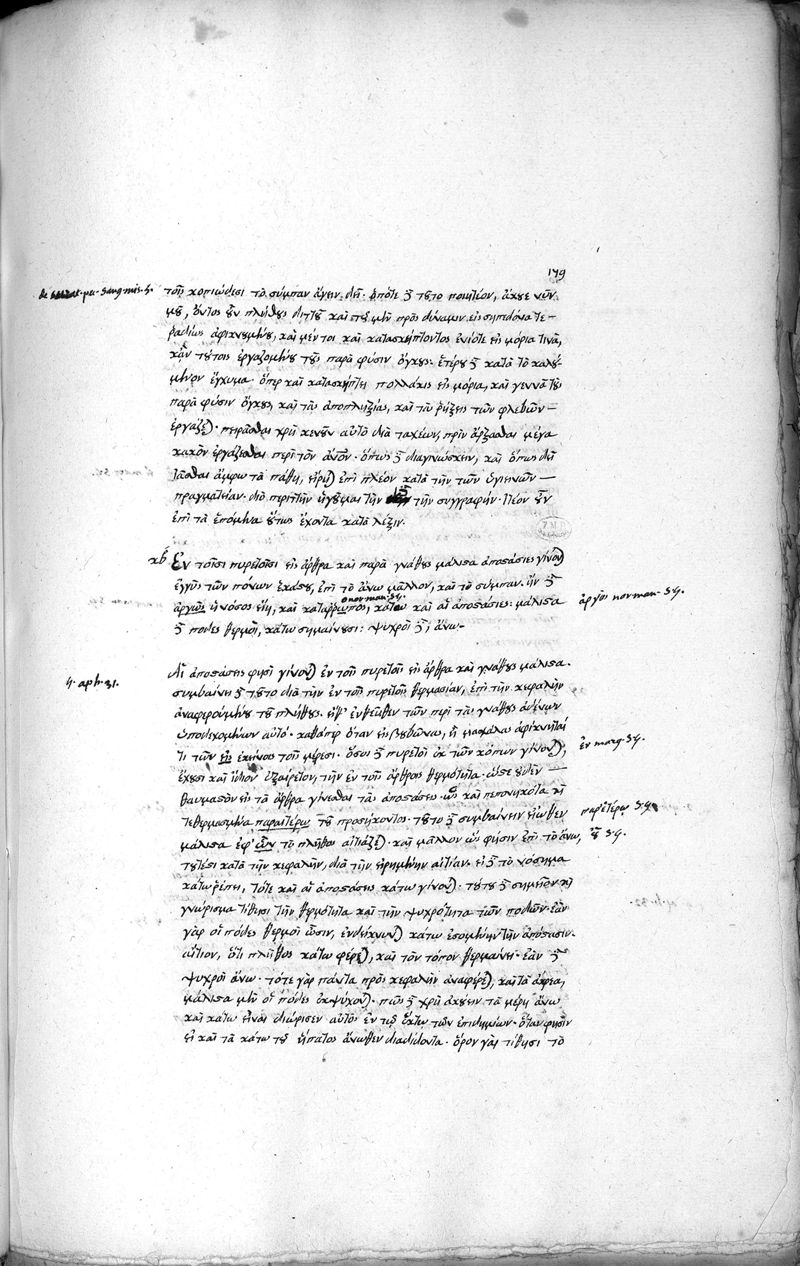 179
τοῖς κοπιώδεσι τὸ σύμπαν ἄγειν δεῖ. ὁπότε δὲ τοῦτο ποιητέον, ἄκουε νῦν
μου, ὄντος οὖν πλήθους διττοῦ καὶ τοῦ μὲν πρὸς δύναμιν εἰς σηπεδόνα τε
ῥαδίως ἀφικνουμένου, καὶ μέν τοι καὶ κατασκήπτοντος ἐνίοτε εἰς μόρια τινὰ,
κἀν τούτοις ἐργαζομένου τοὺς παρὰ φύσιν ὄγκους. ἑτέρου δὲ κατὰ τὸ καλού-
μενον ἔγχυμα. ὅπερ καὶ κατασκήπτει πολλάκις εἰς μόρια, καὶ γεννᾷ τοὺς
παρὰ φύσιν ὄγκους, καὶ τὰς ἀποπληξίας, καὶ τὰς ῥήξεις τῶν φλεβῶν
ἐργάζεται. πειρᾶσθαι χρὴ κενοῦν αὐτὸ διὰ ταχέων, πρὶν ἄρξασθαι μέγα
κακὸν ἐργάζεσθαι περὶ τὸν ἄνθρωπον. ὅπως δὲ διαγινώσκειν, καὶ ὅπως δεῖ
ἰᾶσθαι ἄμφω τὰ πάθη, εἴρηται ἐπὶ πλέον κατὰ τὴν τῶν ὑγιεινῶν
πραγματείαν. διὸ περιττὴν ἡγοῦμαι τὴν τὴν συγγραφήν. ἰτέον οὖν
ἐπὶ τὰ ἑπόμενα οὕτως ἔχοντα κατὰ λέξιν.
κβ Ἐν τοῖσι πυρετοῖσι εἰς ἄρθρα καὶ παρὰ γνάθους μάλιστα ἀποστάσιες γίνονται
ἐγγὺς τῶν πόνων ἑκάστου, ἐπὶ τὸ ἄνω μᾶλλον, καὶ τὸ σύμπαν. ἢν δὲ
ἀργὸς ἡ νόσος εἴη, καὶ κατάρροπος, κάτω καὶ αἱ ἀποστάσιες: μάλιστα
δὲ πόδες θερμοὶ, κάτω σημαίνουσι: ψυχροὶ δὲ, ἄνω
ἀργὸς non man. 54.
4. aph. 31.
Αἱ ἀποστάσεις φησὶ γίνονται ἐν τοῖς πυρετοῖς εἰς ἄρθρα καὶ γνάθους μάλιστα.
συμβαίνει δὲ τοῦτο διὰ τὴν ἐν τοῖς πυρετοῖς θερμασίαν, ἐπὶ τὴν κεφαλὴν
ἀναφερομένου τοῦ πλήθους. εἶτ' ἐντεῦθεν τῶν περὶ τὰς γνάθους ἀδένων
ὑποδεχομένων αὐτό. καθάπερ ὅταν εἰς βουβῶνας, ἢ μασχάλας ἀφίκνηταί
τι τῶν εἰς ἐκείνοις τοῖς μέρεσι. ὅσοι δὲ πυρετοὶ ἐκ τῶν κόπων γίνονται,
ἐν marg. 54.
ἔχουσι καὶ ἴδιον ἐξαίρετον, τὴν ἐν τοῖς ἄρθροις θερμότητα. ὥστε οὐδὲν
θαυμαστὸν εἰς τὰ ἄρθρα γίνεσθαι τὰς ἀποστάσεις ὡς καὶ πεπονηκότα καὶ
τεθερμασμένα περαιτέρω τοῦ προσήκοντος. τοῦτο δὲ συμβαίνειν εἴωθεν
μάλιστα ἐφ' ὧν τὸ πλῆθος αἰτιάζεται. καὶ μᾶλλον ὥς φησιν ἐπὶ τὸ ἄνω,
τουτέστι κατὰ τὴν κεφαλὴν, διὰ τὴν εἰρημένην αἰτίαν. εἰ δὲ τὸ νόσημα
κάτω ῥέπει, τότε καὶ αἱ ἀποστάσεις κάτω γίνονται. τούτου δὲ σημεῖον καὶ
γνώρισμα τίθησι τὴν θερμότητα καὶ τὴν ψυχρότητα τῶν ποδῶν. ἐὰν
γὰρ οἱ πόδες θερμοὶ ὦσιν, ἐνδείκνυνται κάτω ἐσομένην τὴν ἀπόστασιν.
αἴτιον, ὅτι πλῆθος κάτω φέρεται, καὶ τὸν τόπον θερμαίνει. ἐὰν δὲ
ψυχροὶ ἄνω. τότε γὰρ πάντα πρὸς κεφαλὴν ἀναφέρεται, καὶ τὰ ἄκρα,
μάλιστα μὲν οἱ πόδες ἐκψύχονται. πῶς δὲ χρὴ ἀκούειν τὰ μέρη ἄνω
καὶ κάτω εἶναι διώρισεν αὐτὸς ἐν τῷ ἕκτῳ τῶν ἐπιδημίων. ὅταν φησὶν
εἰ καὶ τὰ κάτω τοῦ ἥπατος ἄνωθεν διαδιδόντα. ὅρον γὰρ τίθησι τὸ